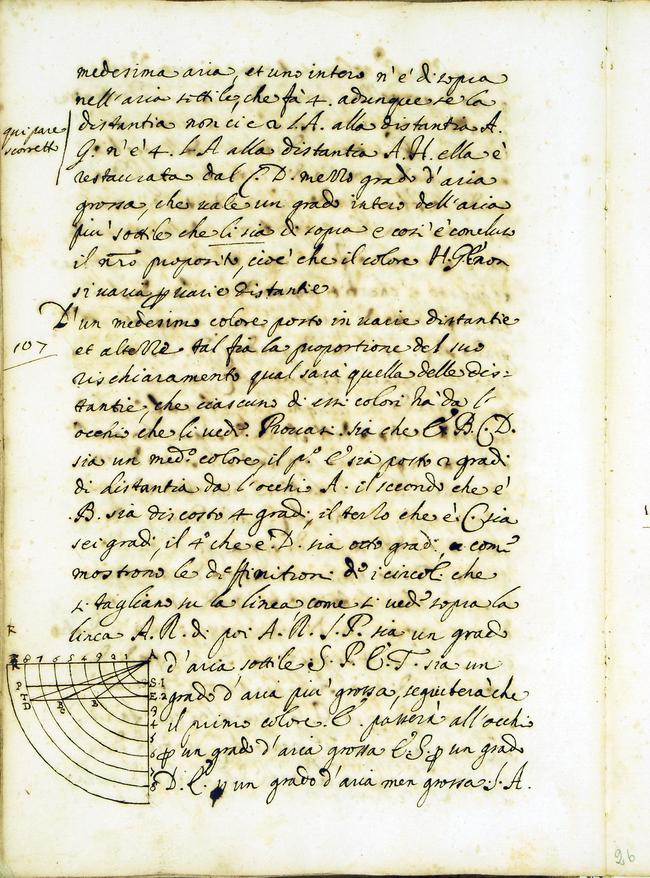 medesima aria, et uno intero n'è di sopra
nell'aria sottile, che fà 4. adunque se la
qui pare
scorretto
distantia non ci è 2 S.A. alla distantia A.
G. n'è 4. S.A alla distantia A.H. ella è
restaurata dal C.D. mezzo grado d'aria
grossa, che uale un grado intero dell'aria
più sottile che li sia di sopra e così è concluso
il nr̃o proposito, cioè che il colore H.G.E non
si uaria ꝑ uarie distantie
107
D'un medesimo colore posto in uarie distantie
et altezze tal fia la proportione del suo
rischiaramento qual sarà quella delle dis=
tantie, che ciascuno di essi colori ha da l'
occhi che li uedº. Prouasi. sia che E.B.C.D.
sia un medº colore, il pº. E sia posto 2 gradi
di distantia da l'occhi A. il secondo che è
.B. sia discosto 4 gradi, il terzo che è .C. sia
sei gradi, il 4º che è D. sia otto gradi, come
mostrono le diffinitioni de i circoli che
si tagliano su la linea come si uedº sopra la
linea A.R. di poi A.R.S.P. sia un grado
d'aria sottile S.P.E.T. sia un
grado d'aria più grossa, seguiterà che
il primo colore .E. passerà all'occhi
ꝑ un grado d'aria grossa E.S. ꝑ un grado
D.E. ꝑ un grado d'aria men grossa .S.A.
R
8 7 6 5 4 3 2 1 A
S 1
E 2
3
4
5
6
7
8
P
T
D
B
26